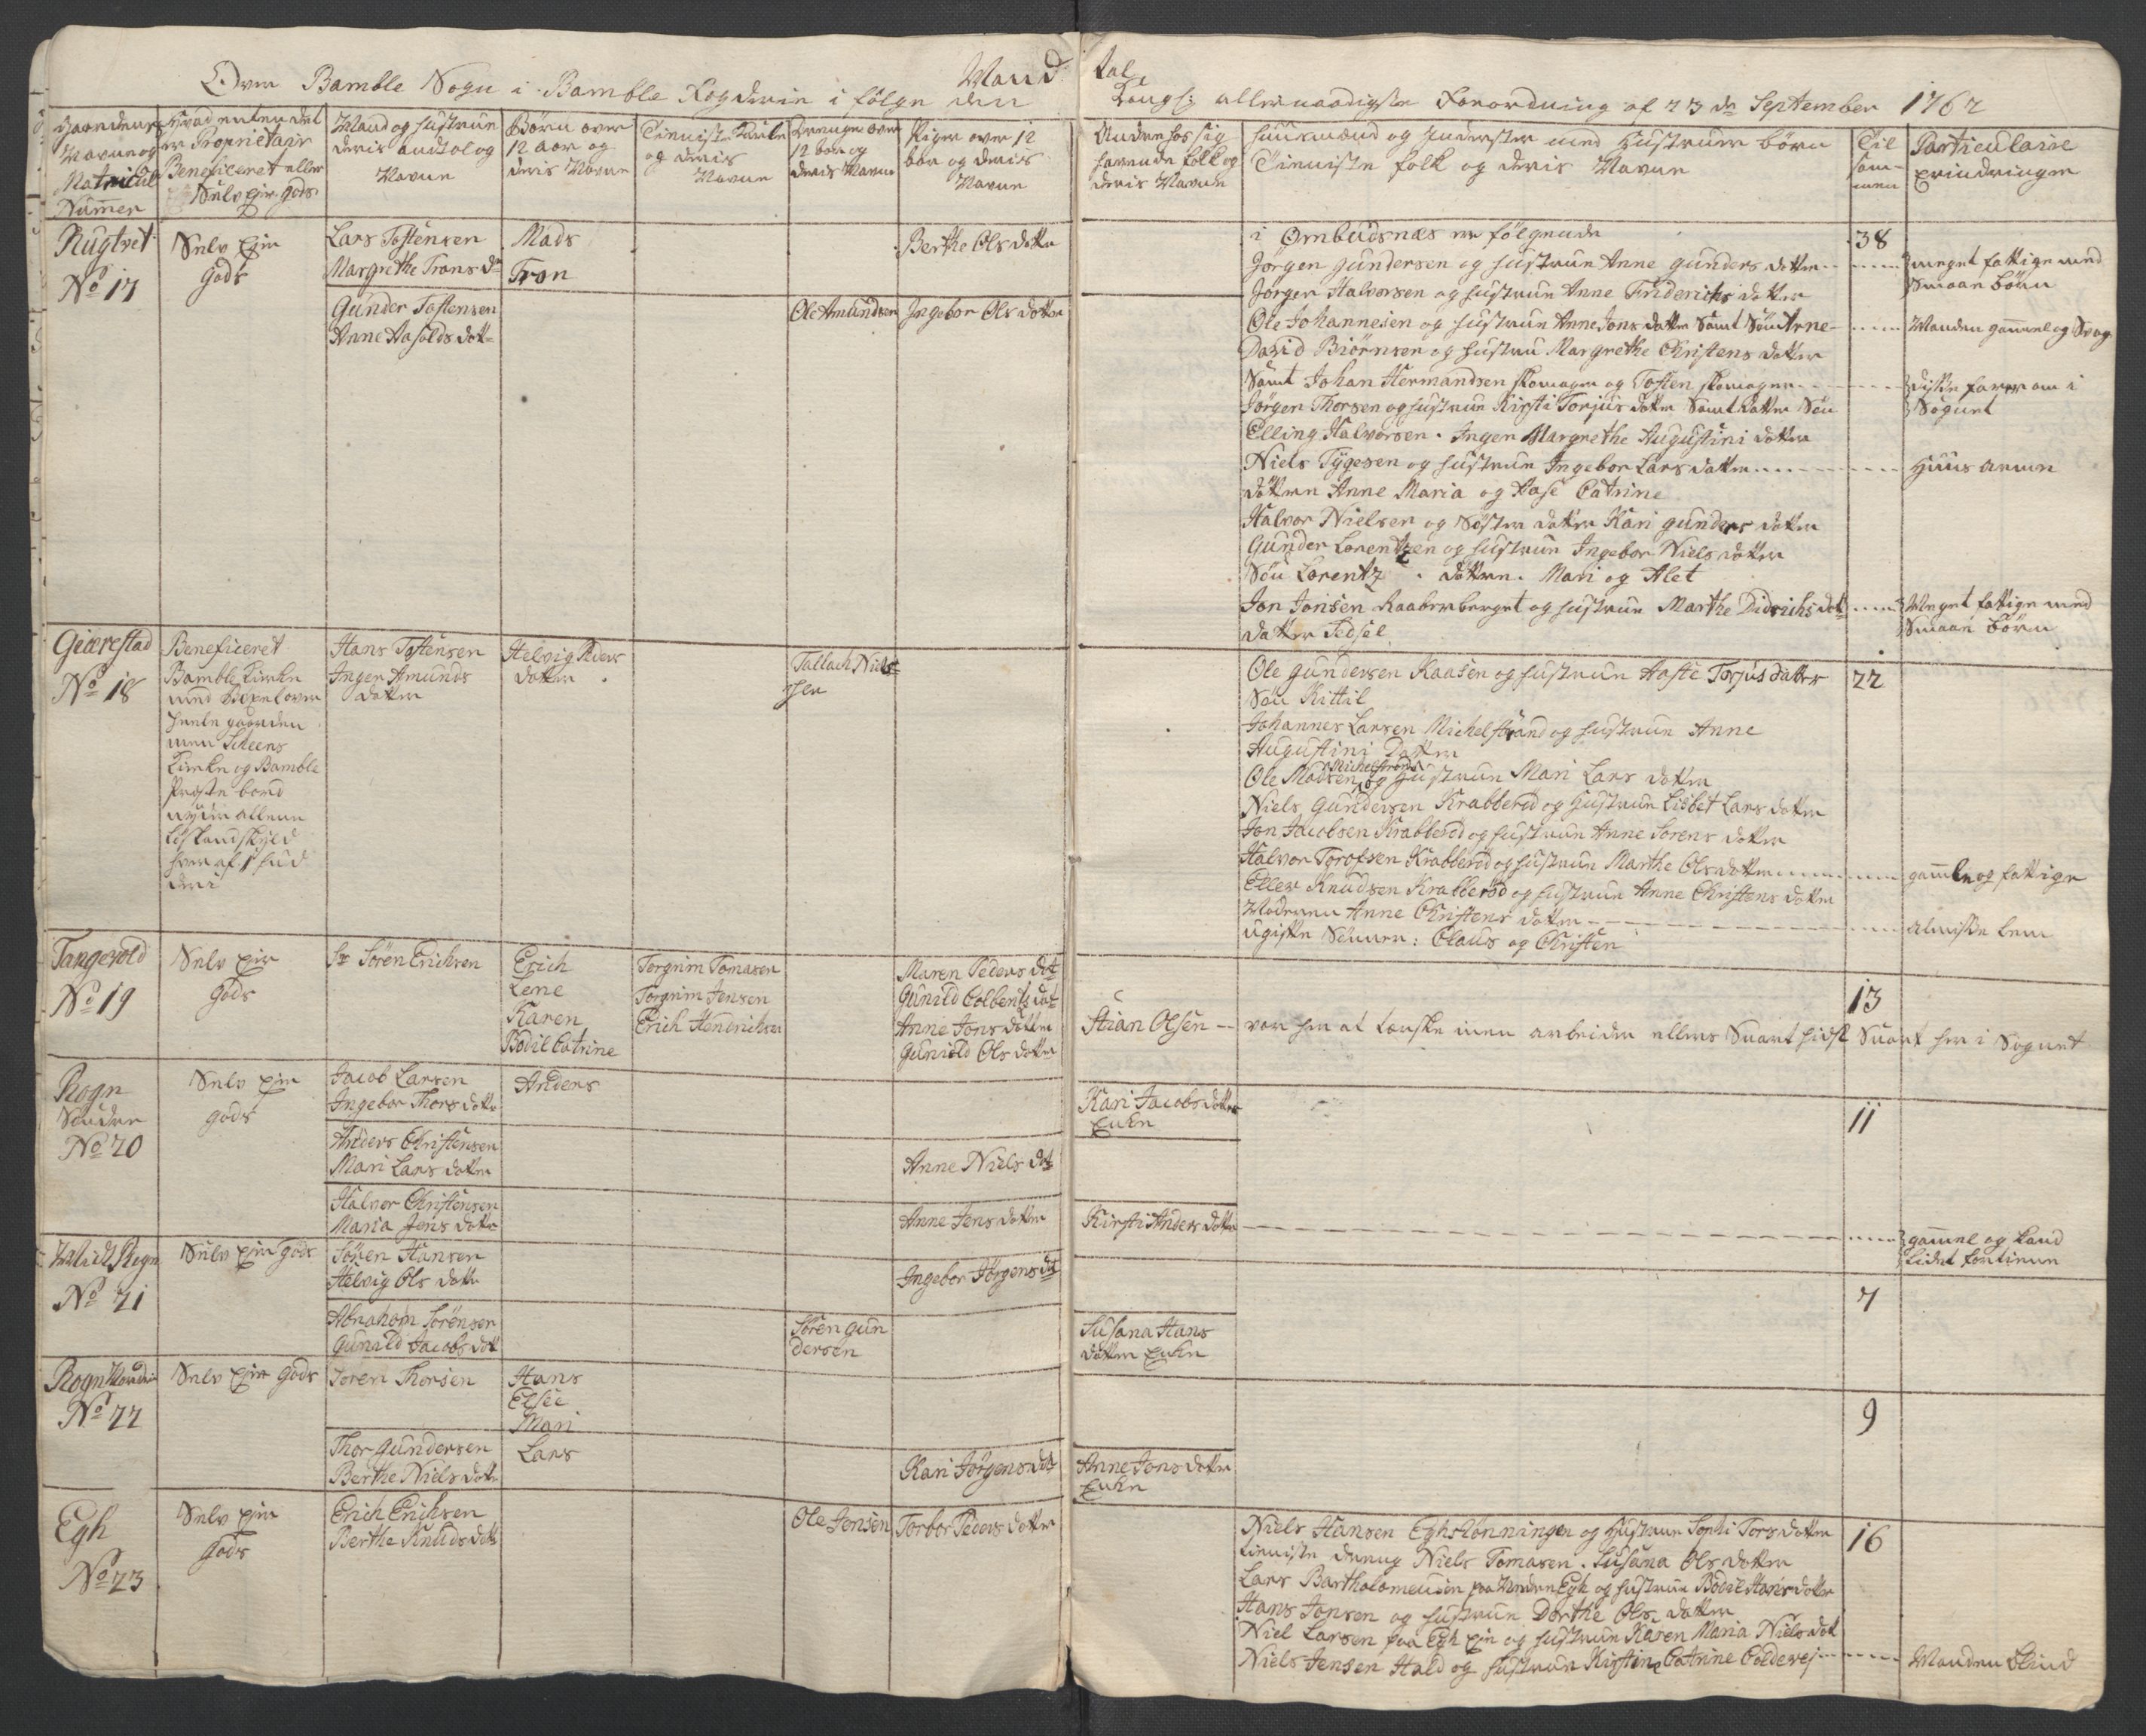 Mand tal
Over Bamble Sogn i Bamble Fogderie i følge den Kongl: allernaadigste Forordning af 23de September 1762
Gaardenes Navne og Matricul Nummer
Hvad enten det er Proprietair Beneficeret eller Selv Ejer gods
Mand og Hustrue deris antal og Navne
Børn over 12 aar og deris Navne
Tieniste Karle og deris Navne
Drenge over 12 aar og deris Navne
Piger over 12 aar og deris Navne
Andre hos sig havende folk og deris Navne
Huusmænd og Inderster med Hustruer børn Tieniste folk og deris Navne
Til sam-men
Particulaire Erindringer
Rugtvet No 17
Selv Ejer gods
Lars Tostensen
Margrethe Trons dr
Mads
Tron
Berthe Ols datter
Gunder Tostensen
Anne Aasolds dott
Ole Amundsen
Ingebor Ols datter
i Ombudsnæs ere følgende
38
Jørgen Gundersen og Hustrue Anne Gunders datter
meget fattige med
Smaae børn
Jørgen Halvorsen og Hustrue Anne Friderichs datter
Ole Johannesen og Hustrue Anne Jons datter Samt Søn Arne
Manden gammel og Svag
David Biørnsen og Hustru Margrethe Christens datter
Samt Johan Hermandsen skomager og Tosten skomager
diske farer om i
Sognet
Jørgen Thorsen og Hustrue Kirsti Torjus datter Samt datter Søn
Elling Halvorsen. Inger Margrethe Augustini datter
Niels Tygesen og Hustrue Ingebor Lars datter
Huus arme
døttre Anne Maria og Aase Catrine
Halvor Nielsen og Søster datter Kari Gunders datter
Gunder Lorentzen og Hustrue Ingebor Niels datter
Søn Lorentz. døttre. Mari og Alet
Jon Jonsen Raaberberget og Hustrue Marthe Didrichs dott
Meget fattige med
Smaae børn
datter Sidsel
Giærestad No 18
Beneficeret
Bamble Kirke
med Bøxel over
heele gaarden
men Scheens
Kirke og Bamble
Preste bord
nyder alleene
Lidt Landskyld
hver af 1 hud
deri
Hans Tostensen
Inger Amunds datter
Helvig Peders datter
Tallach Nielssen
Ole Gundersen Raasen og Hustrue Aaste Torjus datter
22
Søn Kittil
Johannes Larsen Michelstrand og Hustrue Anne
Augustini Datter
Ole Madsen Michelstrand og Hustrue Mari Lars datter
Niels Gundersen Krabberød og Hustrue Lisbet Lars datter
Jon Jacobsen Krabberød og Hustrue Anne Sørens datter
Halvor Torofsen Krabberød og Hustrue Marthe Ols datter
gamle og fattige
Eller Knudsen Krabberød og Hustrue Anne Christens datter
Moderen Anne Christens datter
almisse lem
ugifte Sønner: Claus og Christen
Tangevold No 19
Selv Ejer gods
Sr Søren Erichsen
Erich
Lene
Karen
Bodil Catrine
Torgrim Tomasen
Torgrim Jensen
Erich Hendrichsen
Maren Peders dat
Gunild Colbents dat
Anne Jons datter
Gunild Ols datter
Stian Olsen
var her at tærske men arbeider ellers Snart hist Snart her i Sognet
13
Rogn Søndre No 20
Selv Ejer gods
Jacob Larsen
Ingebor Thors datter
Anders
Kari Jacobs datter Enke
11
Anders Christensen
Mari Lars datter
Anne Niels dat
Halvor Christensen
Maria Jens datter
Anne Jens datter
Kirsti Anders datter
gamel og kand
lidet fortiene
Midt Rogn No 21
Selv Ejer gods
Søren Hansen
Helvig Ols datter
Ingebor Jørgens dat
7
Abraham Sørensen
Gunild Jacobs dott
Søren Gundersen
Susana Hans datter Enke
Rogn Nordre No 22
Selv Ejer gods
Soren Thorsen
Hans
Elsee
Mari
9
Thor Gundersen
Berthe Niels datter
Lars
Kari Jørgens dat
Anne Jons datter Enke
Egh No 23
Selv Ejer gods
Erich Erichsen
Berthe Knuds datt
Ole Jensen
Torbor Peders datter
Niels Hansen Eghslønningen og Hustrue Sophi Tors datter
16
tieniste dreng Niels Tomasen. Susana Ols datter
Lars Bartholomeusen paa Unden Egh og Hustrue Bodil Hans datter
Hans Jonsen og Hustrue Dorthe Ols datter
Niel Larsen paa Egh Eje og Hustrue Karen Maria Niels dott
Niels Jensen Hald og Hustrue Kirstine Catrine Coldevej
Manden blind